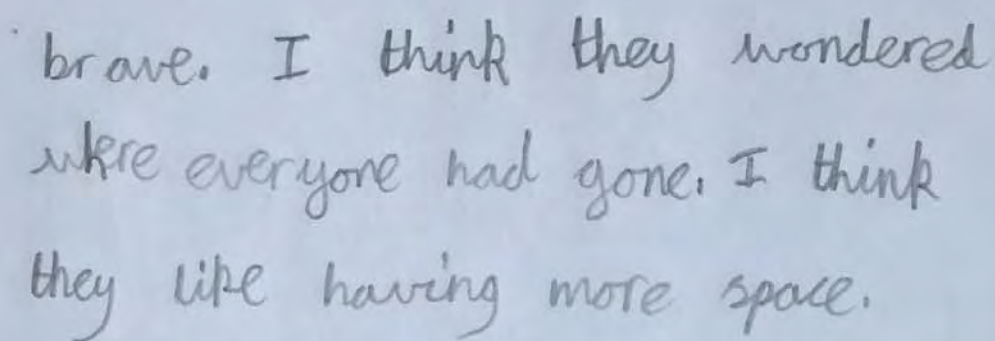 brave. I think they wondered
where everyone had gone. I think
they like having more space.